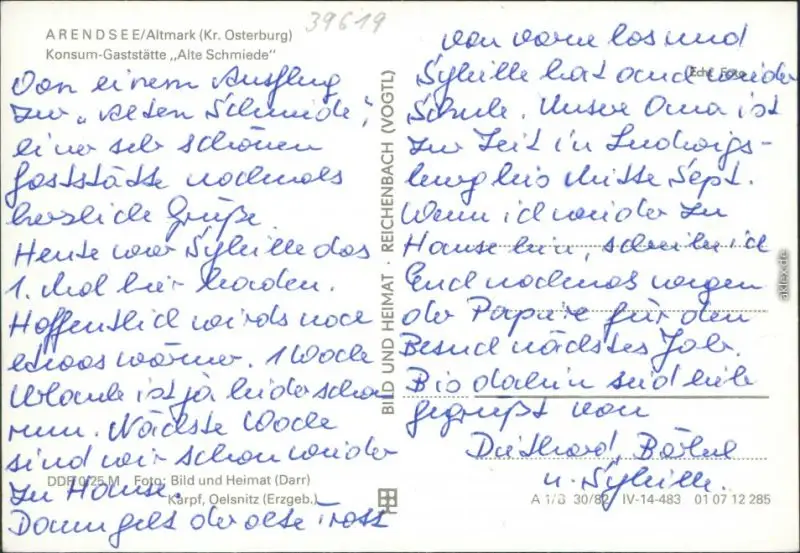 39619
ARENDSEE/Altmark (Kr. Osterburg)
Konsum-Gaststätte „Alte Schmiede“
Von einem Ausflug
zur „Alten Schmiede“,
einer sehr schönen
Gaststätte nochmals
herzliche Grüße.
Heute war Sybille das
1. Mal hier baden.
Hoffentlich wirds noch
etwas wärmer. 1 Woche
Urlaub ist ja leider schon
rum. Nächste Woche
sind wir schon wieder
zu Hause.
Dann geht der alte Trott
von vorne los und
Sybille hat auch wieder
Schule. Unsere Oma ist
zur Zeit in Ludwigs-
burg bis Mitte Sept.
Wenn ich wieder zu
Hause bin, schreib ich
Euch nochmas wegen
der Papiere für den
Besuch nächstes Jahr.
Bis dahin seid lieb
gegrüßt von
Diethard, Bärbel
u. Sybille.
Echt Foto
BILD UND HEIMAT · REICHENBACH (VOGTL)
DDR 0,25 M Foto: Bild und Heimat (Darr)
Karpf, Oelsnitz (Erzgeb.)
A 1/B 30/82 IV-14-483 01 07 12 285
aklex.de